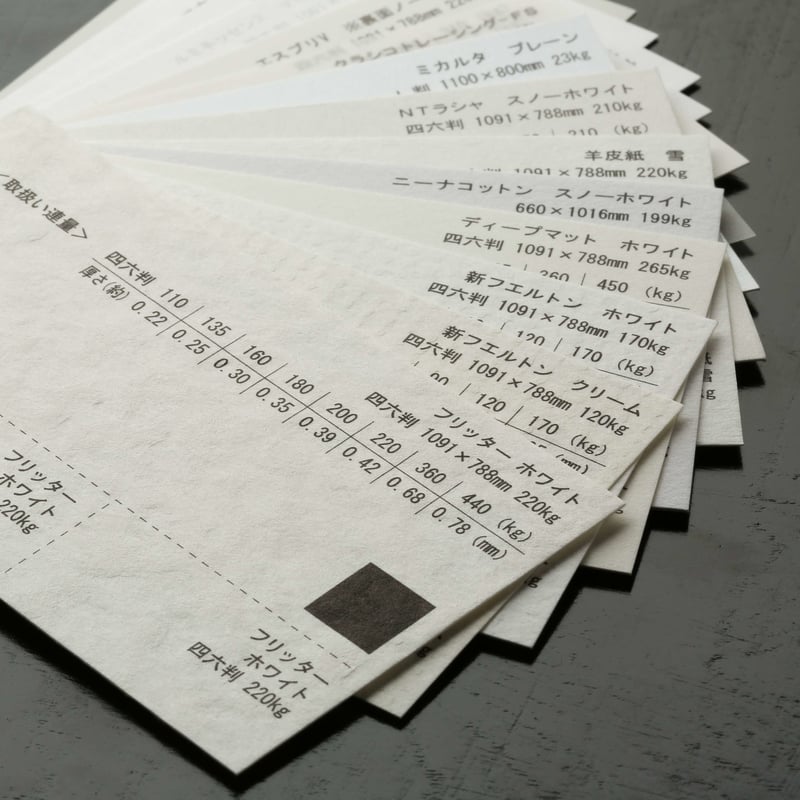 エスプリV
クラシコトレーシング-FS
ミカルタ プレーン
1100×800mm 23kg
NTラシャ スノーホワイト
四六判 1091×788mm 210kg
210 (kg)
羊皮紙 雪
1091×788mm 220kg
ニーナコットン スノーホワイト
660×1016mm 199kg
ディープマット ホワイト
四六判 1091×788mm 265kg
360 | 450 (kg)
新フエルトン ホワイト
四六判 1091×788mm 170kg
120 | 170 (kg)
新フエルトン クリーム
四六判 1091×788mm 120kg
120 | 170 (kg)
(mm)
フリッター ホワイト
四六判 1091×788mm 220kg
<取扱い連量>
四六判 110 | 135 | 160 | 180 | 200 | 220 | 360 | 440 (kg)
厚さ(約) 0.22 | 0.25 | 0.30 | 0.35 | 0.39 | 0.42 | 0.68 | 0.78 (mm)
フリッター
ホワイト
220kg
フリッター
ホワイト
四六判 220kg
雪